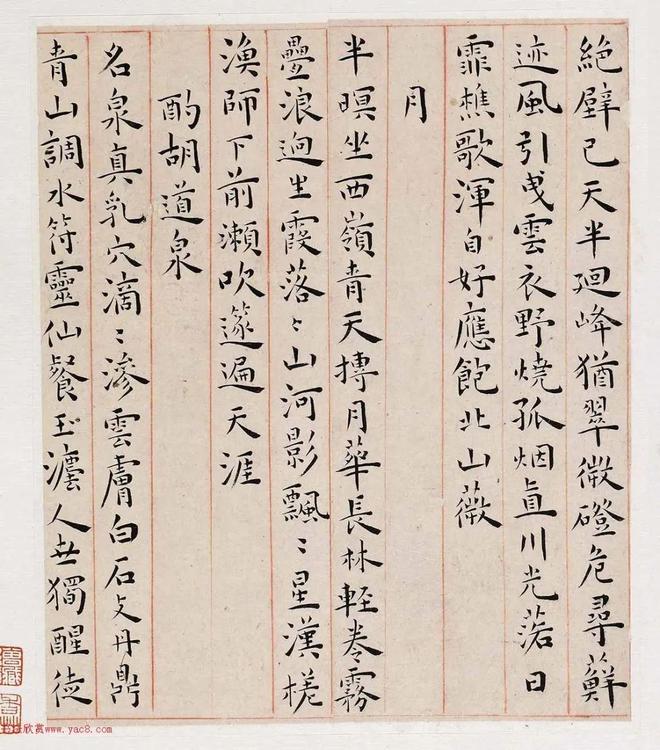 絕壁已天半廻峰猶翠微磴危尋蘚
迹風引曳雲衣野燒孤烟直川光落日
霏樵歌渾自好應飽北山薇
月
半暝坐西嶺青天摶月華長林輕卷霧
疊浪迥生霞落〻山河影飄〻星漢槎
漁師下前瀨吹篴遍天涯
酌胡道泉
名泉真乳穴滴〻滲雲膚白石支丹鼎
青山調水符靈仙餐玉瀍人世獨醒徒
欣赏 www.yac8.com